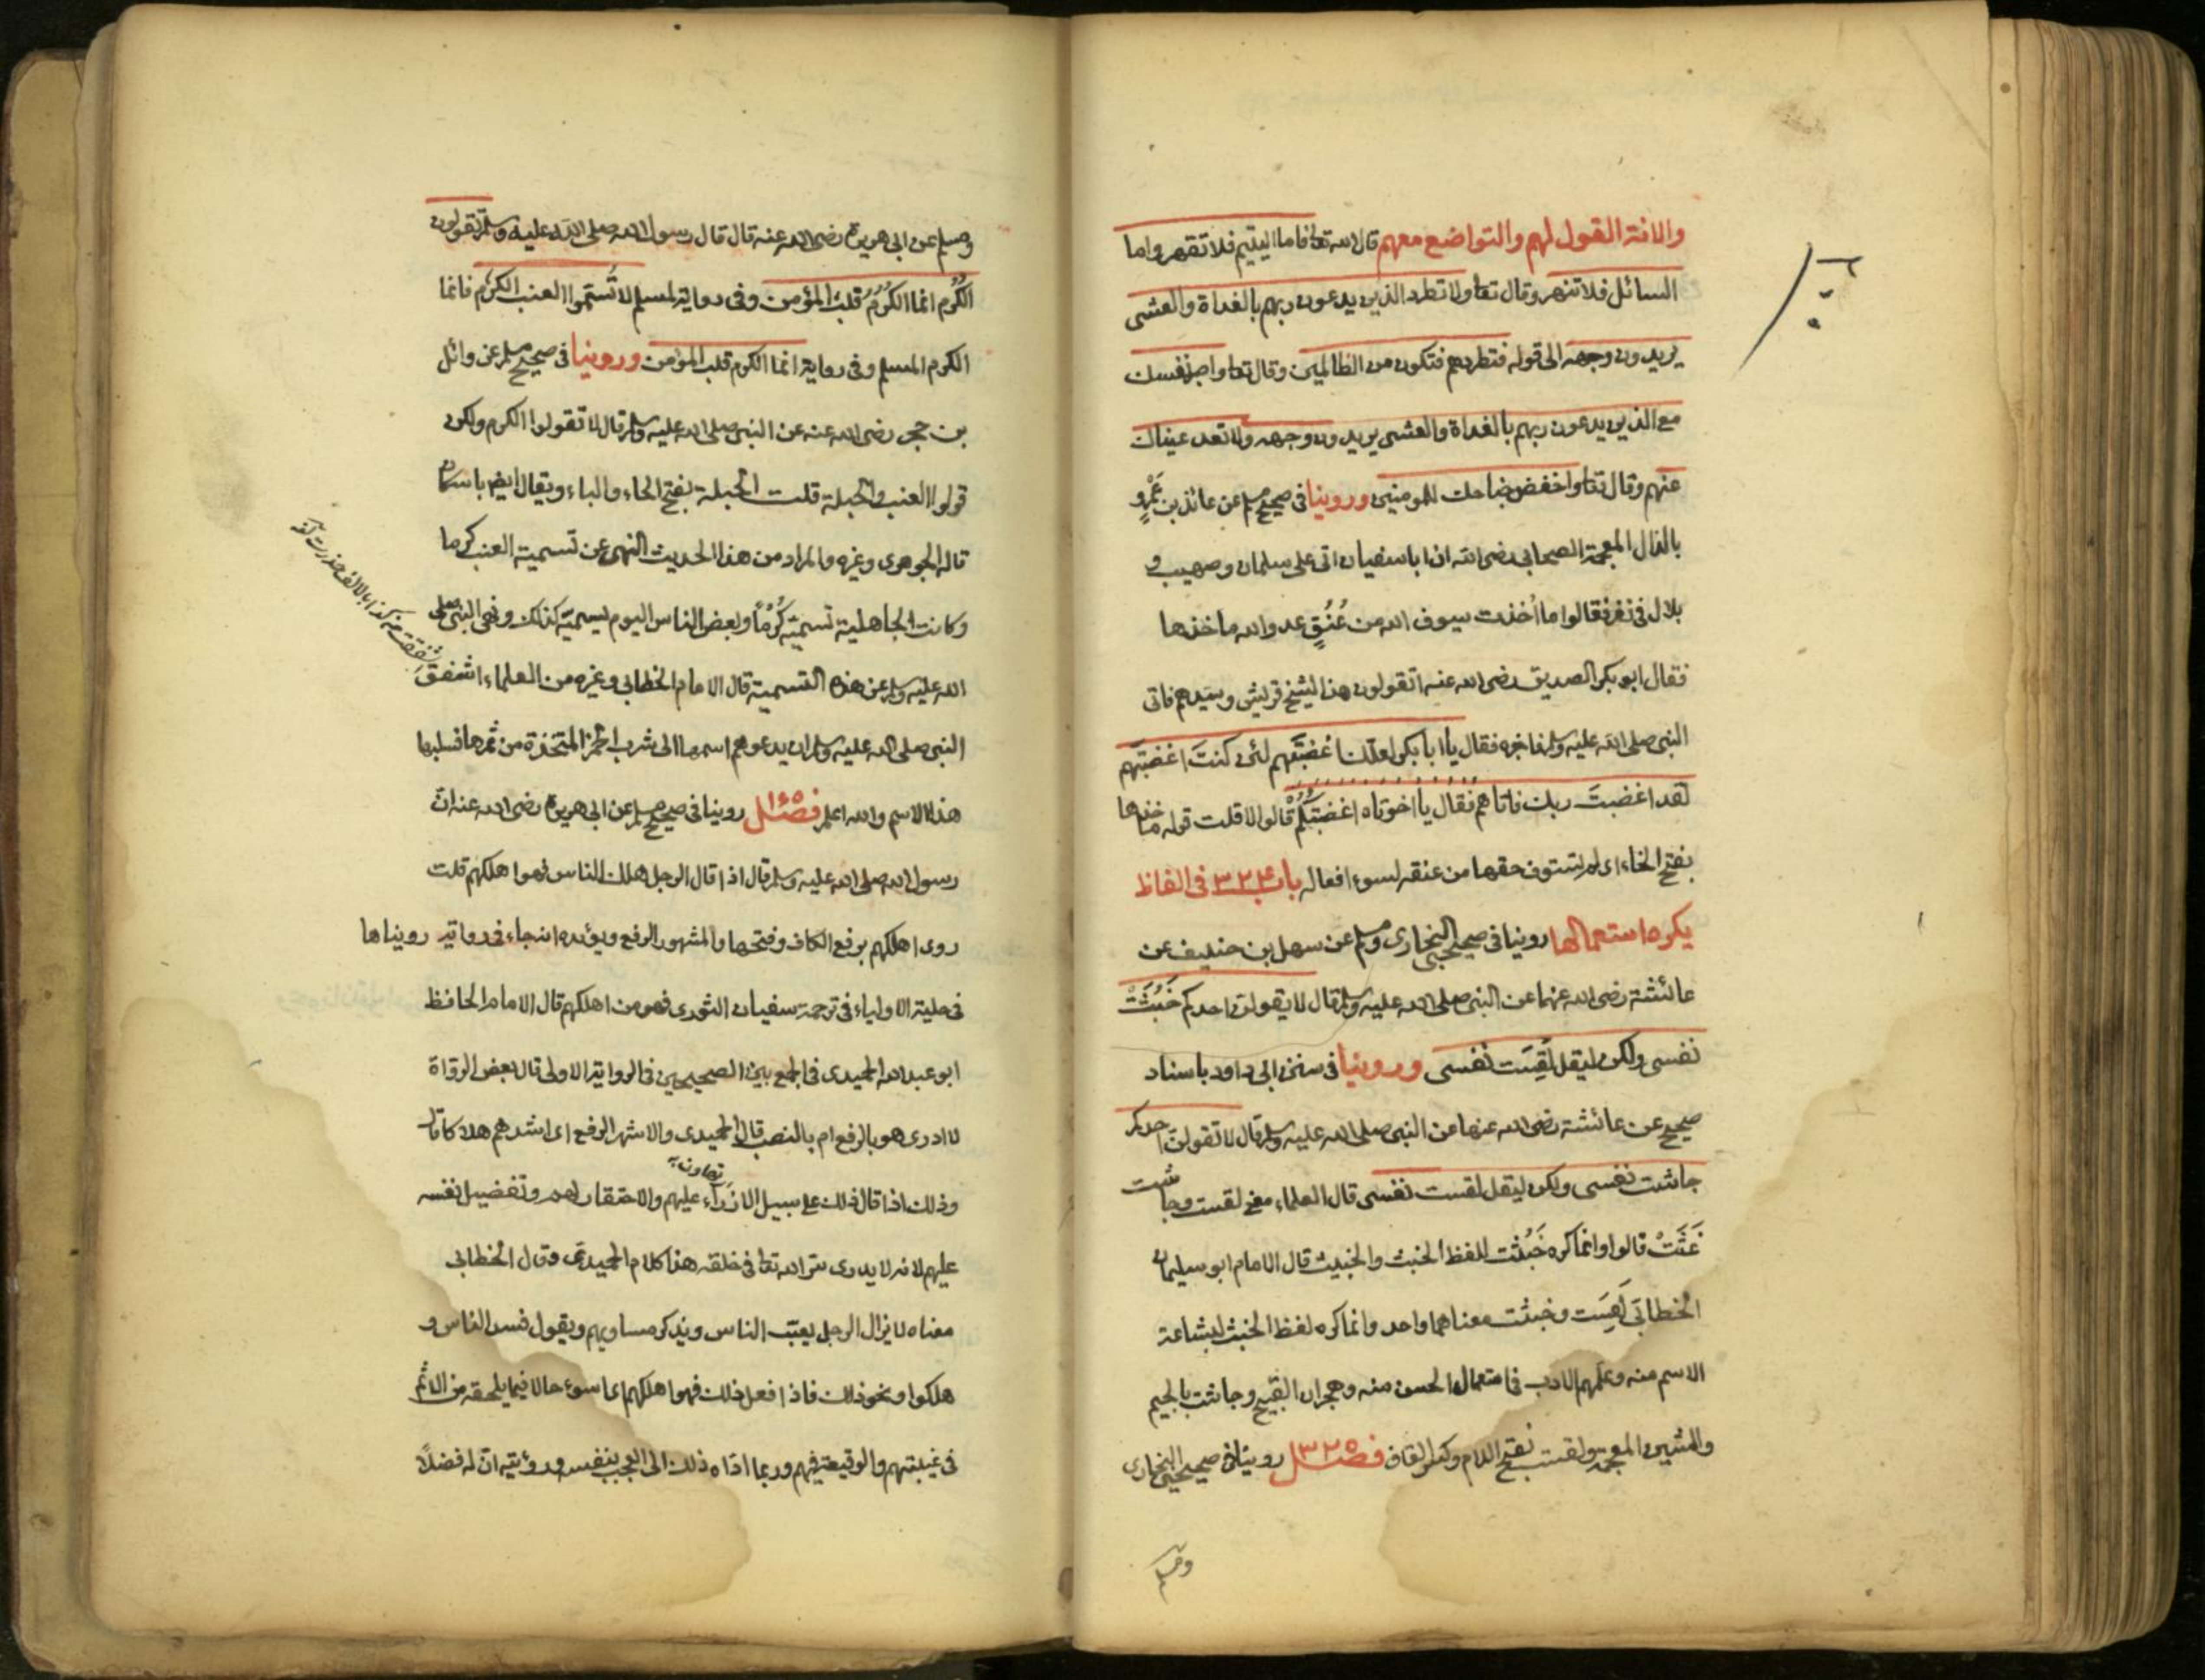 والانة القول لهم والتواضع معهم قال الله تعا فاما اليتيم فلا تقهر واما
السائل فلا تنهر وقال تعا ولا تطرد الذين يدعون ربهم بالغداة والعشى
يريدون وجهه الى قوله فتطردهم فتكون من الظالمين وقال تعا واصبر نفسك
مع الذين يدعون ربهم بالغداة والعشى يريدون وجهه ولا تعد عيناك
عنهم وقال تعا واخفض جناحك للمومنين وروينا فى صحيح مسلم عن عائذ بن عَمْرٍو
بالذال المعجمة الصحابى رضى الله ان ابا سفيان اتى على سلمان وصهيب و
بلال فى نفر فقالوا ما اُخذت سيوف الله من عُنُقِ عدو الله ماخذها
فقال ابو بكر الصديق رضى الله عنه اتقولون هذا لشيخ قريش وسيدهم فاتى
النبى صلى الله عليه وسلم فاخبره فقال يا ابا بكر لعلك اغضبتَهم لئن كنتَ اغضبتَهم
لقد اغضبتَ ربك فاتاهم فقال يا اخوتاه اغضبتُكُمْ قالوا لا قلت قوله ماخذها
بفتح الخاء اى لم تستوف حقها من عنقه لسوء افعاله باب ٣٣٤ فى الفاظ
يكره استعمالها روينا فى صحيحى البخارى ومسلم عن سهل بن حنيف عن
عائشة رضى الله عنها عن النبى صلى الله عليه وسلم قال لا يقولن احدكم خَبُثَتْ
نفسى ولكن ليقل لَقِسَت نفسى وروينا فى سنن ابى داود باسناد
صحيح عن عائشة رضى الله عنها عن النبى صلى الله عليه وسلم قال لا تقولن احدكم
جاشت نفسى ولكن ليقل لقست نفسى قال العلماء معنى لقست وجاشت
غَثَتْ قالوا وانما كره خَبُثت للفظ الخبث والخبيث قال الامام ابو سليمان
الخطابى لَقِسَت وخبثت معناهما واحد وانما كره لفظ الخبث لبشاعة
الاسم منه وعلّمهم الادب فى استعمال الحسن منه وهجران القبيح وجاشت بالجيم
والشين المعجمة ولقست بفتح اللام وكسر القاف فصل روينا فى صحيحى البخارى
ومسلم
ومسلم عن ابى هريرة رضى الله عنه قال قال رسول الله صلى الله عليه وسلم تقولون
الكَرْم انما الكَرْمُ قلبُ المؤمن وفى رواية لمسلم لا تُسَمّوا العنب الكَرْم فانما
الكرم المسلم وفى رواية انما الكرم قلب المؤمن وروينا فى صحيح مسلم عن وائل
بن حجر رضى الله عنه عن النبى صلى الله عليه وسلم قال لا تقولوا الكرم ولكن
قولوا العنب والحبلة قلت الحبلة بفتح الحاء والباء ويقال ايضا باسكان
قاله الجوهرى وغيره والمراد من هذا الحديث النهى عن تسمية العنب كرما
وكانت الجاهلية تسميه كَرْمًا وبعض الناس اليوم يسميه كذلك ونهى النبى صلى
الله عليه وسلم عن هذه التسمية قال الامام الخطابى وغيره من العلماء اشفق
النبى صلى الله عليه وسلم ان يدعوهم اسمها الى شرب الخمر المتخذة من ثمرها فسلبها
هذا الاسم والله اعلم فصل روينا فى صحيح مسلم عن ابى هريرة رضى الله عنه ان
رسول الله صلى الله عليه وسلم قال اذا قال الرجل هلك الناس فهو اهلكهم قلت
روى اهلكهم برفع الكاف وفتحها والمشهور الرفع ويؤيده انه جاء فى رواية رويناها
فى حلية الاولياء فى ترجمة سفيان الثورى فهو من اهلكهم قال الامام الحافظ
ابو عبد الله الحميدى فى الجمع بين الصحيحين فى الرواية الاولى قال بعض الرواة
لا ادرى هو بالرفع ام بالنصب قال الحميدى والاشهر الرفع اى اشدهم هلاكا قال
وذلك اذا قال ذلك على سبيل الازراء عليهم والاحتقار لهم وتفضيل نفسه
عليهم لانه لا يدرى سر الله تعا فى خلقه هذا كلام الحميدى وقال الخطابى
معناه لا يزال الرجل يعيب الناس ويذكر مساويهم ويقول فسد الناس و
هلكوا ونحو ذلك فاذا فعل ذلك فهو اهلكهم اى اسوء حالا فيما يلحقه من الاثم
فى غيبتهم والوقيعة فيهم وربما اداه ذلك الى العجب بنفسه ورؤيته ان له فضلاً